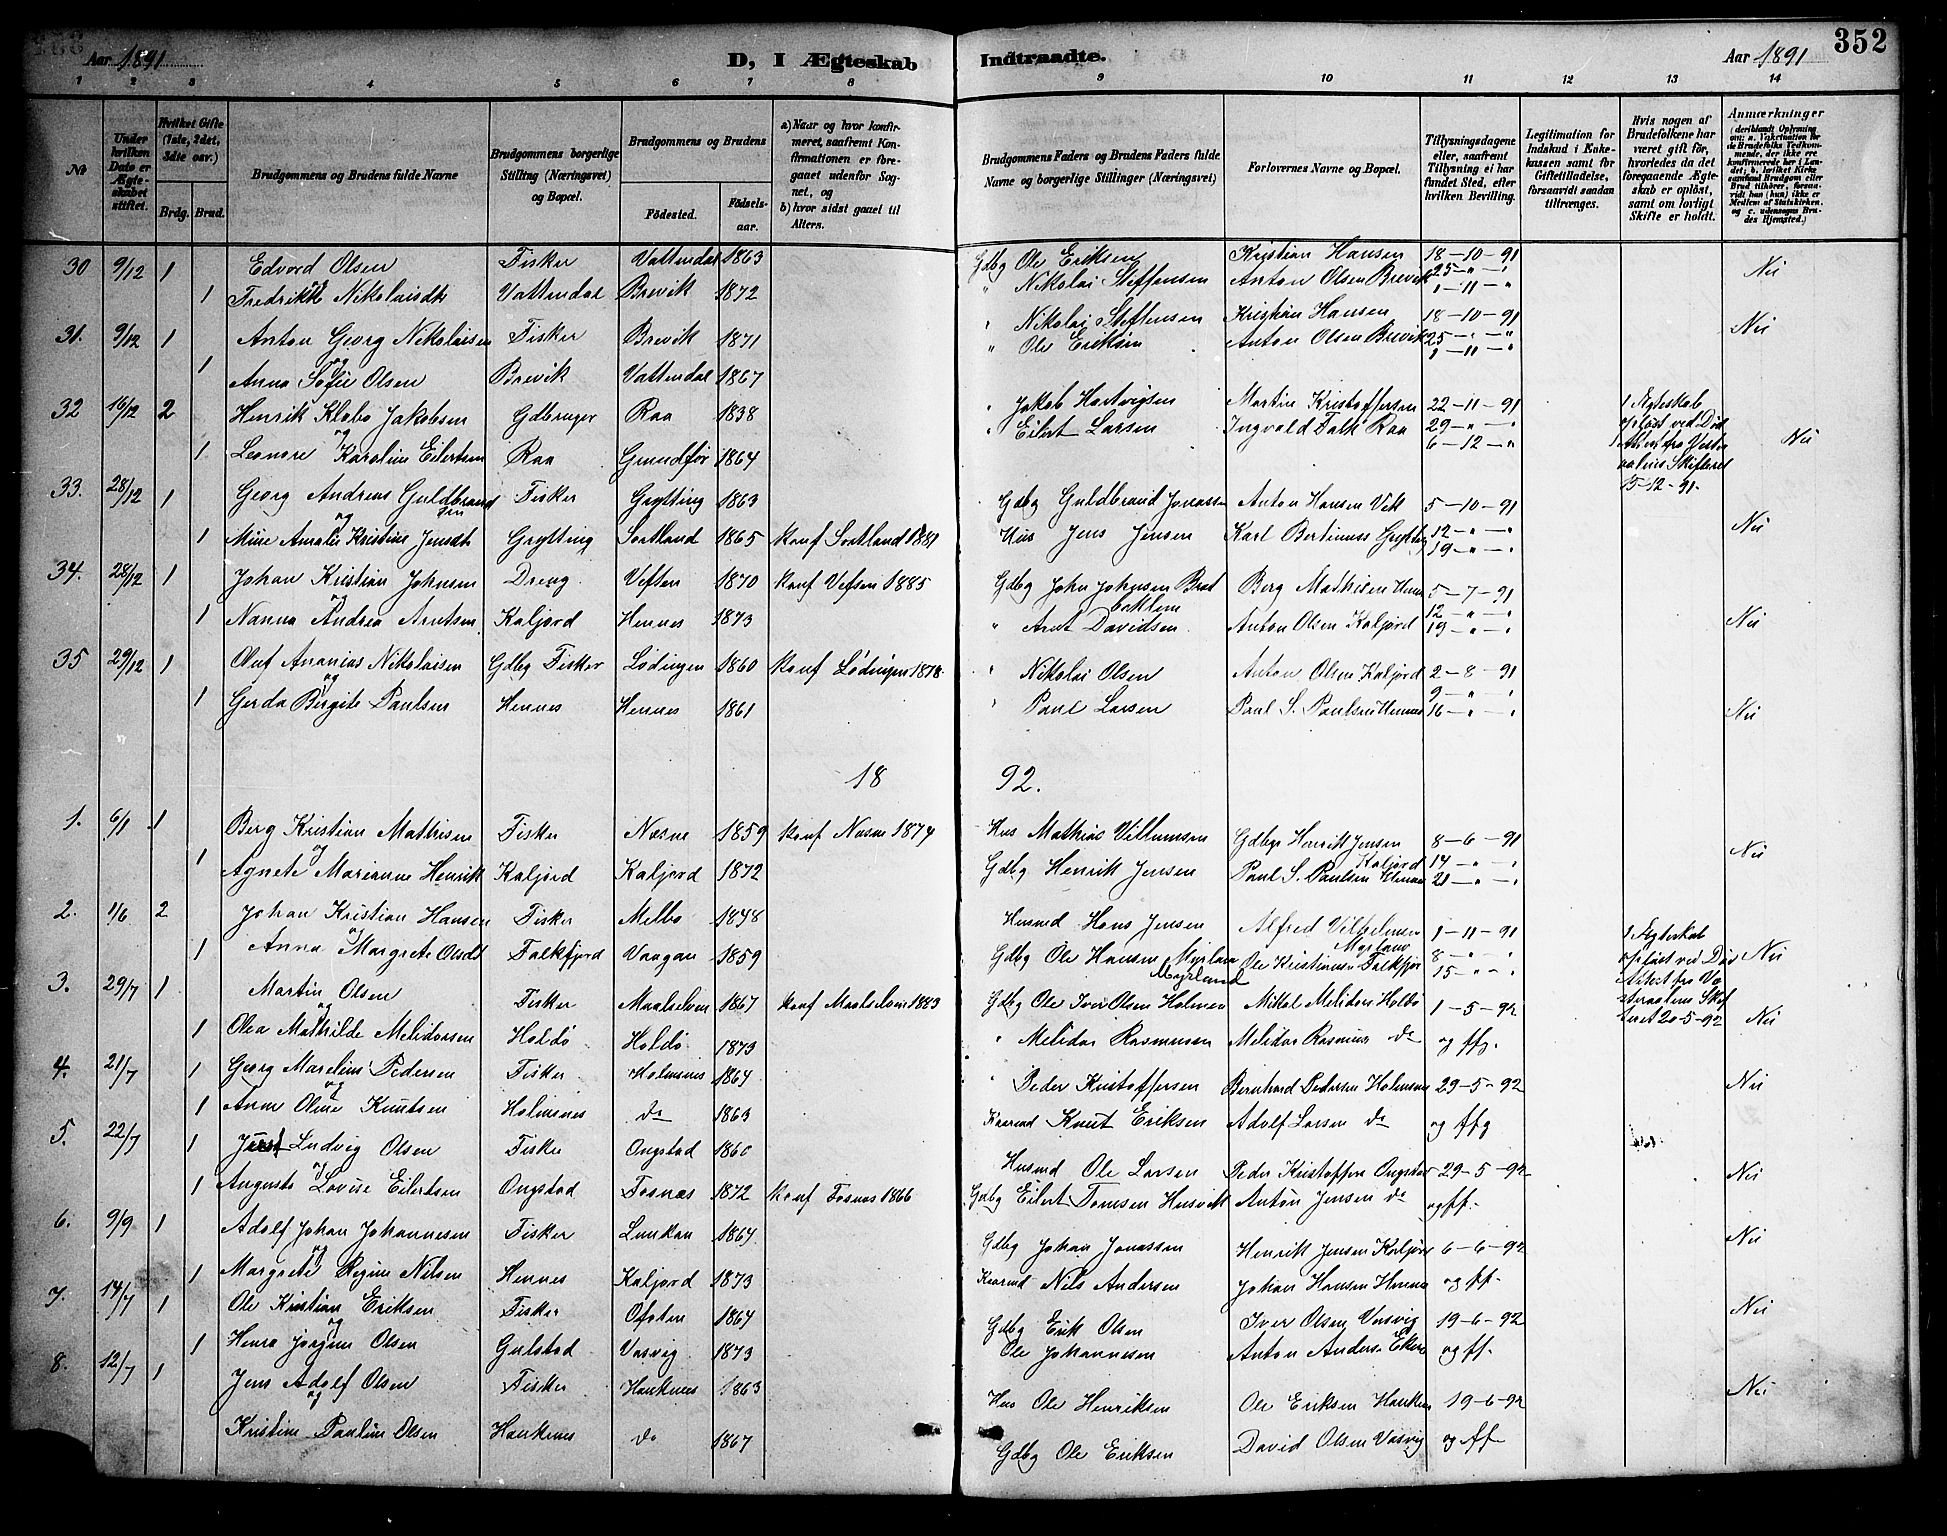 Aar 1891
D, I Ægteskab Indtraadte.
Aar 1891
352
1 2 3 4 5 6 7 8 9 10 11 12 13 14
No
Under hvilken Dato er Ægteskabet stiftet.
Hvilket Gifte (1ste, 2det, 3die osv.)
Brdg. Brud.
Brudgommens og Brudens fulde Navne
Brudgommens borgerlige Stilling (Næringsvei) og Bopæl.
Brudgommens og Brudens
Födested.
Födselsaar.
a) Naar og hvor konfirmeret, saafremt Konfirmationen er foregaaet udenfor Sognet, og
b) hvor sidst gaaet til Alters.
Brudgommens Faders og Brudens Faders fulde Navne og borgerlige Stillinger (Næringsvei)
Forlovernes Navne og Bopæl.
Tillysningsdagene eller, saafremt Tillysning ei har fundet Sted, efter hvilken Bevilling.
Legitimation for Indskud i Enkekassen samt for Giftetilladelse, forsaavidt saadan tiltrænges.
Hvis nogen af Brudefolkene har været gift før, hvorledes da det foregaaende Ægteskab er opløst, samt om lovligt Skifte er holdt.
Anmærkninger
30 9/12 1 Edvord Olsen Fisker Vattendal 1863 Gdbg Ole Eriksen Kristian Hansen 18-10-91 Nei
og 1 Fredrikke Nikolaisdt Vattendal Brevik 1872 " Nikolai Steffensen Anton Olsen Brevik 25-"-" 1-11-"
31. 9/12 1 Anton Georg Nikolaisen Fisker Brevik 1871 " Nikolai Steffensen Kristian Hansen 18-10-91 Nei
og 1 Anna Sofie Olsen Brevik Vattendal 1867 " Ole Eriksen Anton Olsen Brevik 25-"-" 1-11-"
32 16/12 2 Henrik Klæbo Jakobsen Gdbruger Raa 1838 " Jakob Hartvigsen Martin Kristoffersen 22-11-91 1 Ægteskab opløst ved Død
og 1 Leonore Karoline Eilertsen Raa Grundfør 1864 " Eilert Larsen Ingvald Falk Raa 29-"-" 6-12-" Attest fra Vesteraalens Skifteret 15-12-91. Nei
33. 28/12 1 Georg Andreas Guldbrandsen Fisker Grytting 1863 Gdbg Guldbrand Jonassen Anton Hansen Vik 5-10-91
og 1 Mine Amalie Kristine Jensdt Grytting Sortland 1865 Konf Sortland 1881 Hus Jens Jensen Karl Bertinuss Grytting 12-"-" 19-"-" Nei
34. 28/12 1 Johan Kristian Johnsen Dreng Vefsen 1870 Konf Vefsen 1885 Gdbg John Johnsen Berg Mathisen Hennes 5-7-91
og 1 Nanna Andrea Arntsen Kaljord Hennes 1873 " Arnt Davidsen Anton Olsen Kaljord 12-"-" 19-"-" Nei
35 29/12 1 Oluf Ananias Nikolaisen Gdbg Fisker Lødingen 1860 Konf Lødingen 1878 " Nikolai Olsen Anton Olsen Kaljord 2-8-91
og 1 Gerda Birgite Paulsen Hennes Hennes 1861 " Paul Larsen Paul S. Paulsen Hennes 9-"-" 16-"-" Nei
18 92.
1. 6/1 1 Berg Kristian Mathisen Fisker Næsne 1859 Konf Næsne 1874 Hus Mathias Villumsen Gdbg Henrik Jensen Kaljord 8-6-91
og 1 Agnete Marianne Henrik Kaljord Kaljord 1872 Gdbg Henrik Jensen Paul S. Paulsen Hennes 14-"-" 21-"-" Nei
2. 1/6 2 Johan Kristian Hansen Fisker Melbo 1848 Husmd Hans Jensen Alfred Vilhelmsen Myrland 1-11-91 1 Ægteskab opløst ved Død
og 1 Anna Margrete Olsdt Falkfjord Vaagan 1859 Gdbg Ole Hansen Myrland Ole Kristiansen Falkfjor 8-"-" 15-"-" Attest fra Vesteraalens Skifteret 20-5-92 Nei
3. 29/7 1 Martin Olsen Fisker Maalselven 1867 Konf Maalselven 1883 Gdbg Ole Iver Olsen Holmen Mikal Melidon Holdø 1-5-92
og 1 Olea Mathilde Melidorsen Holdø Holdø 1873 " Melidor Rasmussen Melidor Rasmus do og ffg. Nei
4. 21/7 1 Georg Marelius Pedersen Fisker Holmsnes 1864 " Peder Kristoffersen Bernhard Pedersen Holmsnes 29-5-92 Nei
og 1 Anne Oline Knutsen Holmsnes do 1863 Kaarmd Knut Eriksen Adolf Larsen do og ffg
5. 22/7 1 Ludvig Olsen Fisker Ongstad 1860 Husmd Ole Larsen Peder Kristoffers Ongstad 29-5-92
og 1 Augusta Lovise Eilertsen Ongstad Fosnæs 1872 Konf Fosnæs 1866 Gdbg Eilert Tomsen Husvik Anton Jensen do og ff. Nei
6. 9/9 1 Adolf Johan Johannesen Fisker Lunkan 1864 Gdbg Johan Jonassen Henrik Jensen Kaljord 6-6-92 Nei
og 1 Margrete Regine Nilsen Hennes Kaljord 1873 Kaarmd Nils Andersen Johan Hansen Hennes og ff.
7. 14/7 1 Ole Kristian Eriksen Fisker Ofoten 1864 Gdbg Erik Olsen Iver Olsen Vasvig 19-6-92 Nei
og 1 Henra Jørgine Olsen Gulstad Vasvig 1873 Ole Johannesen Anton Anders. og ff.
8. 12/7 1 Jens Adolf Olsen Fisker Hauknes 1863 Hus Ole Henriksen Ole Eriksen Hauknes 19-6-92 Nei
og Kristine Pauline Olsen Hauknes do 1867 Gdbg Ole Eriksen David Olsen Vasvig og ff